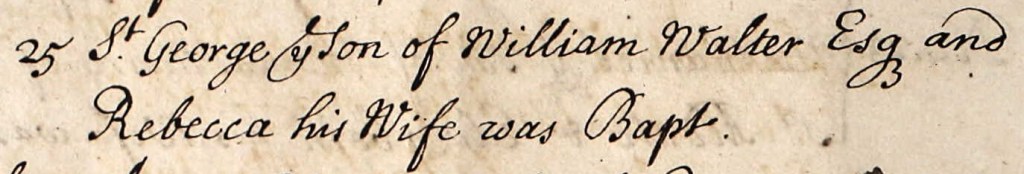 25 St. George ye Son of William Walter Esq and
Rebecca his Wife was Bapt.